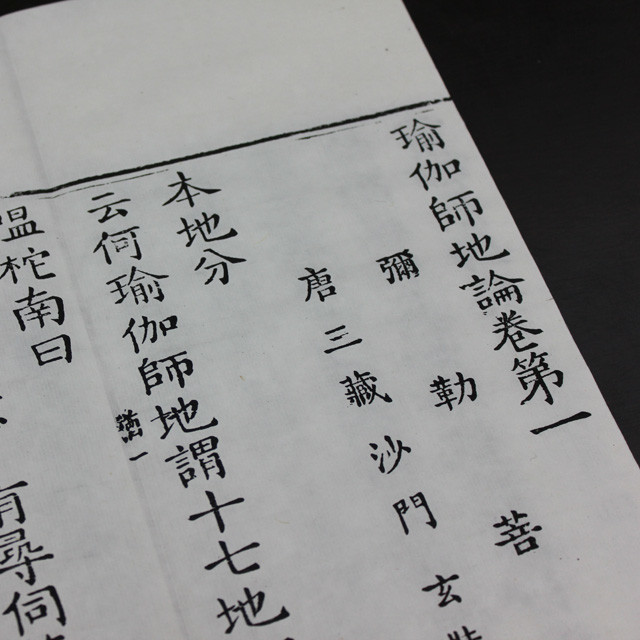 瑜伽師地論卷第一
彌勒菩
唐三藏沙門玄
本地分
云何瑜伽師地謂十七地
嗢柁南曰
有尋伺